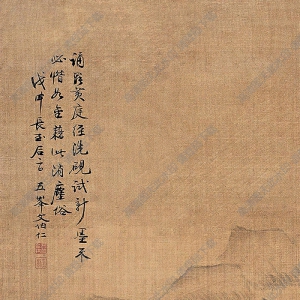 誦罷黃庭經洗硯試新墨不
必惜如金藉此消塵俗
戊申長至后言五峯文伯仁